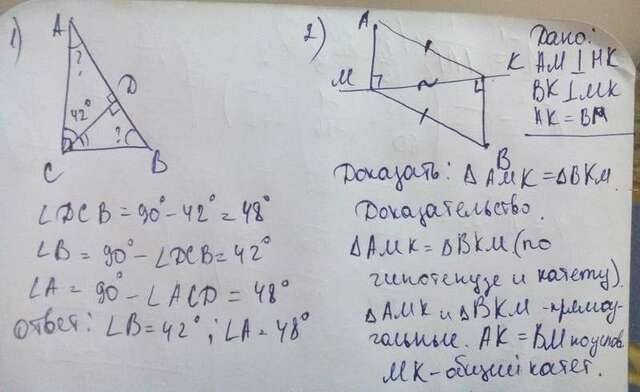 1)
A
?
D
42°
?
C
B
∠DCB = 90° - 42° = 48°
∠B = 90° - ∠DCB = 42°
∠A = 90° - ∠ACD = 48°
Ответ: ∠B = 42°; ∠A = 48°
2)
A
M
K
B
Дано:
AM ⊥ MK
BK ⊥ MK
AK = BM
Доказать: △AMK = △BKM.
Доказательство.
△AMK = △BKM (по
гипотенузе и катету).
△AMK и △BKM - прямоу-
гольные. AK = BM по услов.
MK - общий катет.